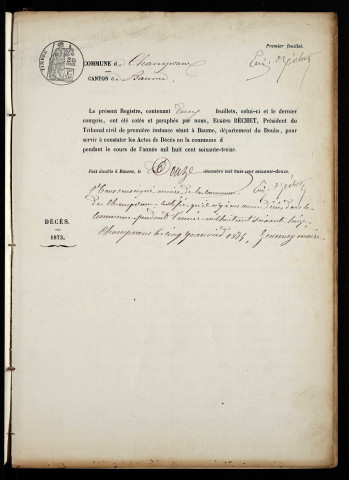 Premier feuillet.
COMMUNE de Champvans
CANTON de Baume
Le présent Registre, contenant Deux feuillets, celui-ci et le dernier
compris, ont été cotés et paraphés par nous, EUGÈNE BÉCHET, Président du
Tribunal civil de première instance séant à Baume, département du Doubs, pour
servir à constater les Actes de Décès en la commune d
pendant le cours de l'année mil huit cent soixante-treize.
Fait double à Baume, le Douze décembre mil huit cent soixante-douze.
Nous soussigné maire de la commune
de Champvans certifie qu'il n'y a eu aucun Décès dans la
commune pendant l'année mil huit cent soixante treize
Champvans le cinq janvier 1874, maire
DÉCÈS.
1873.